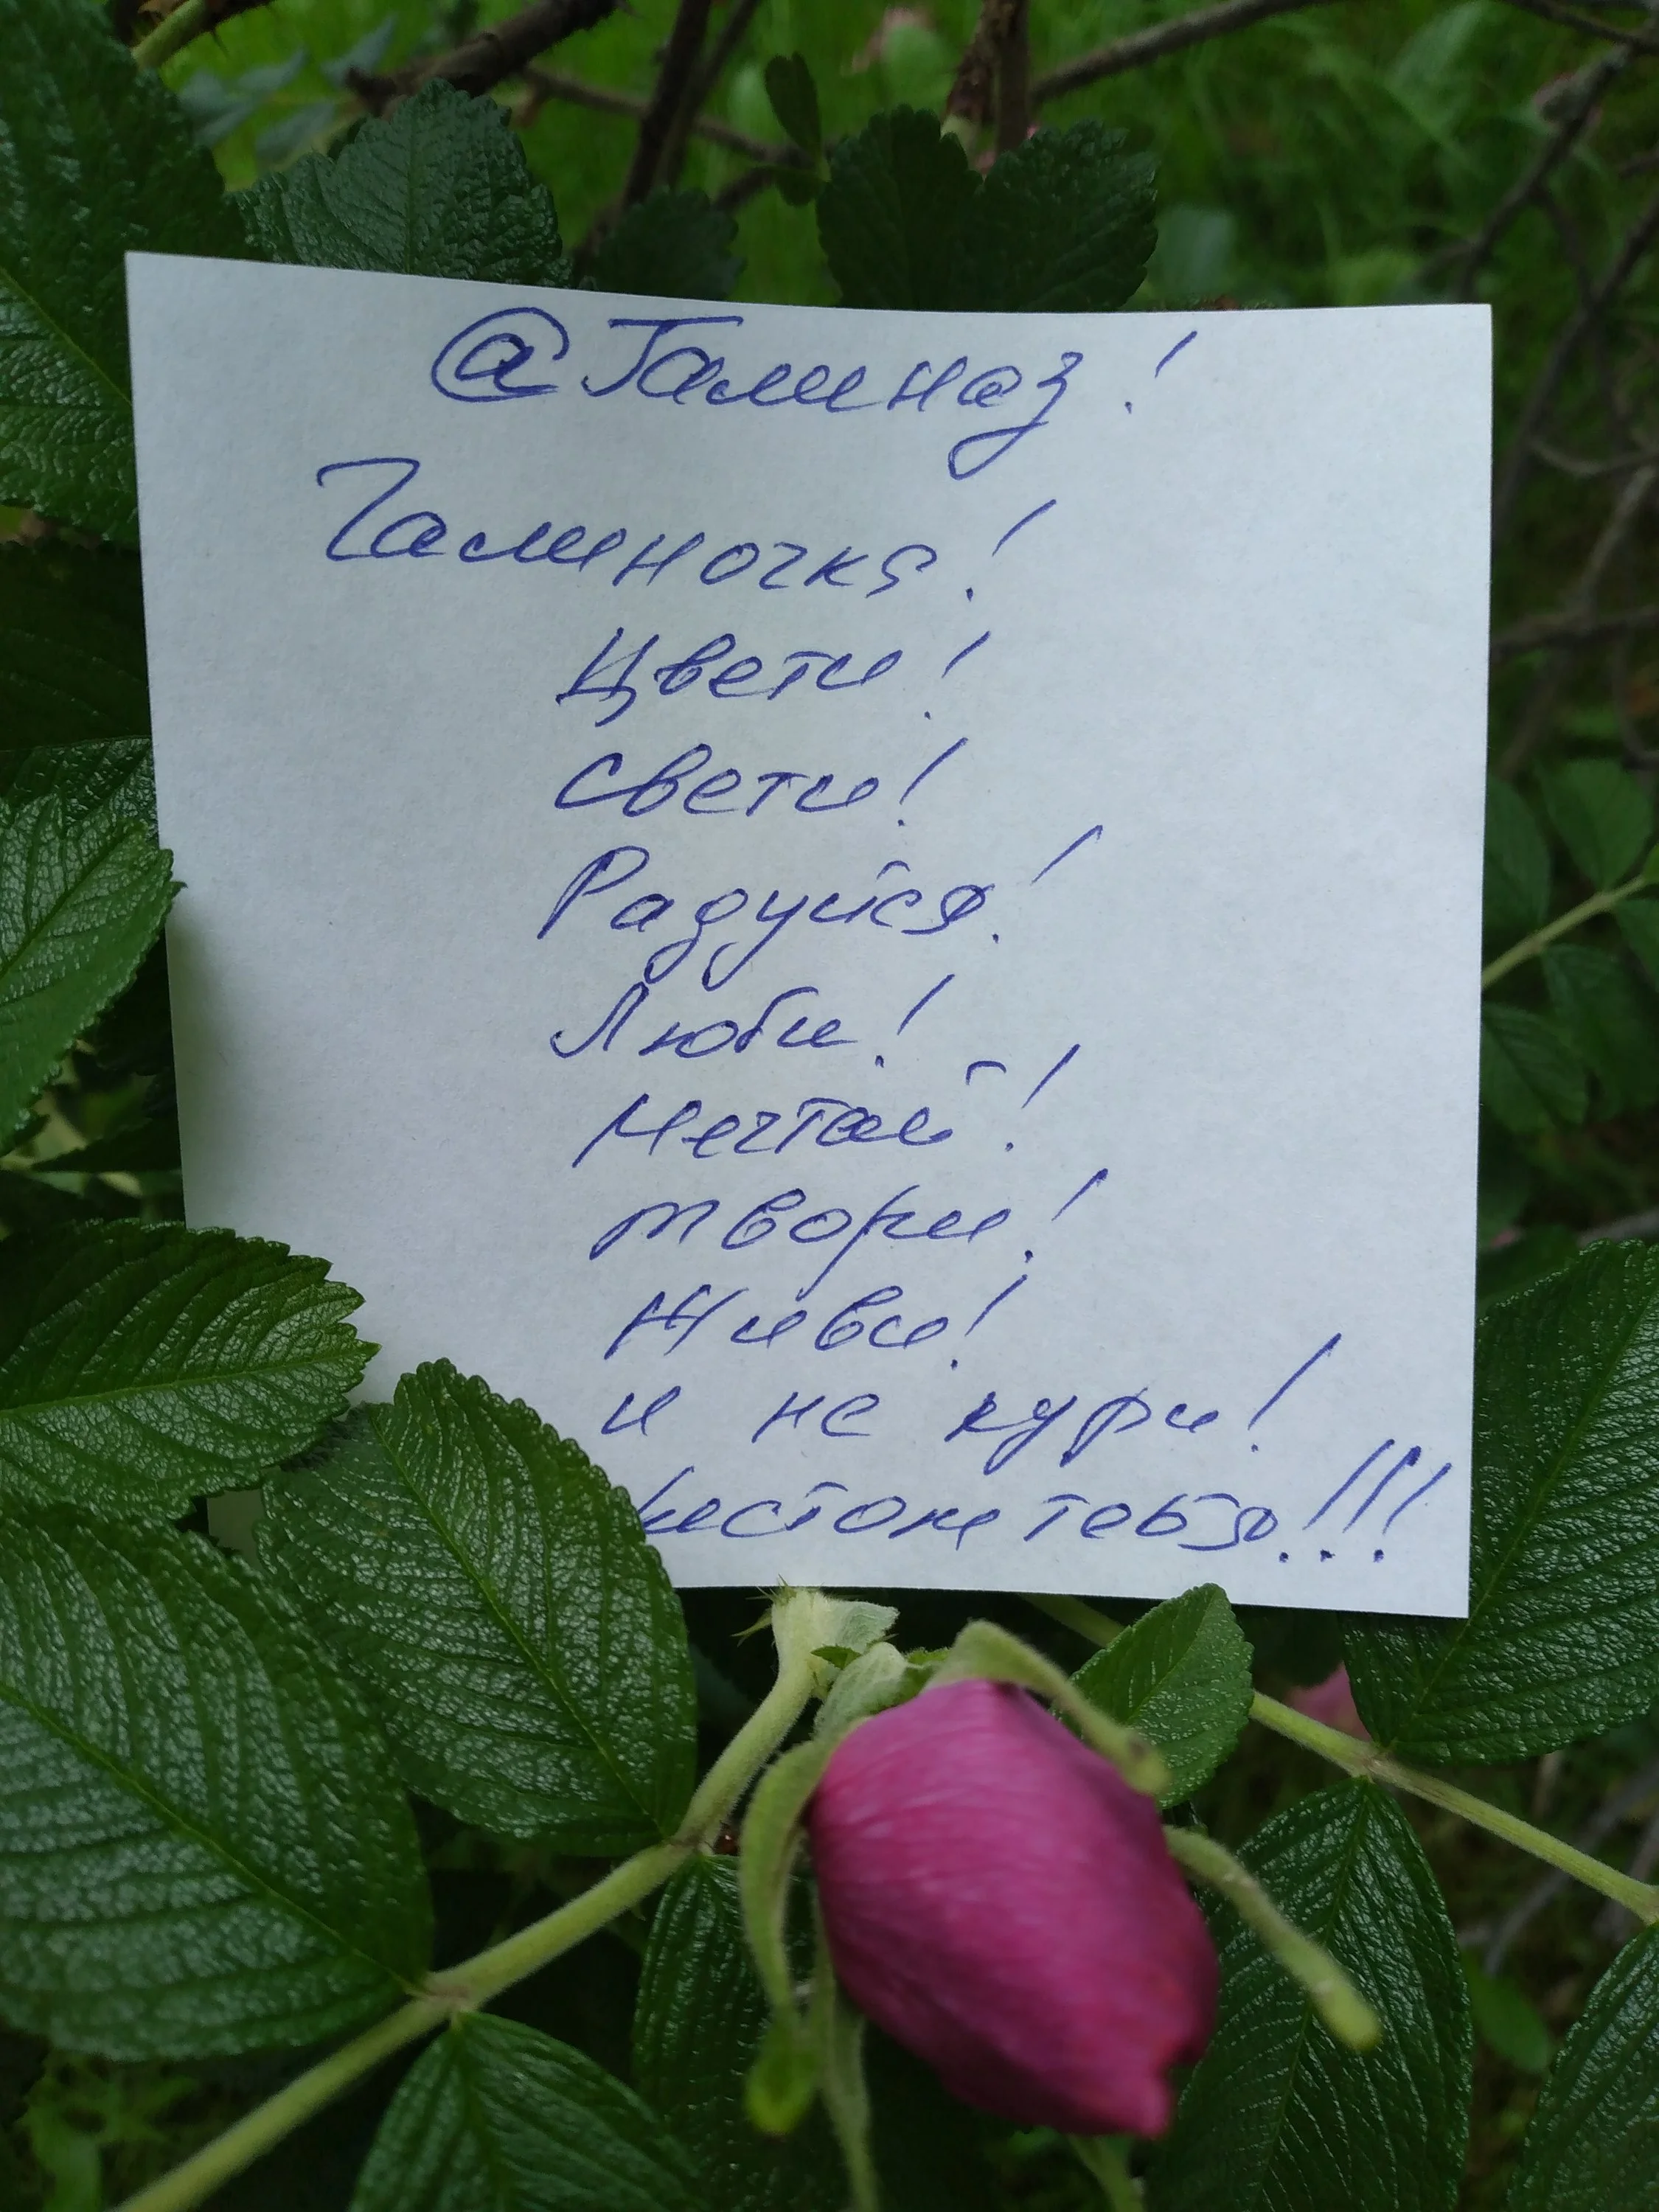 @Галиназ!
Галиночка!
Цвети!
Свети!
Радуйся!
Люби!
Мечтай!
Твори!
Живи!
и не кури!
тебя!!!